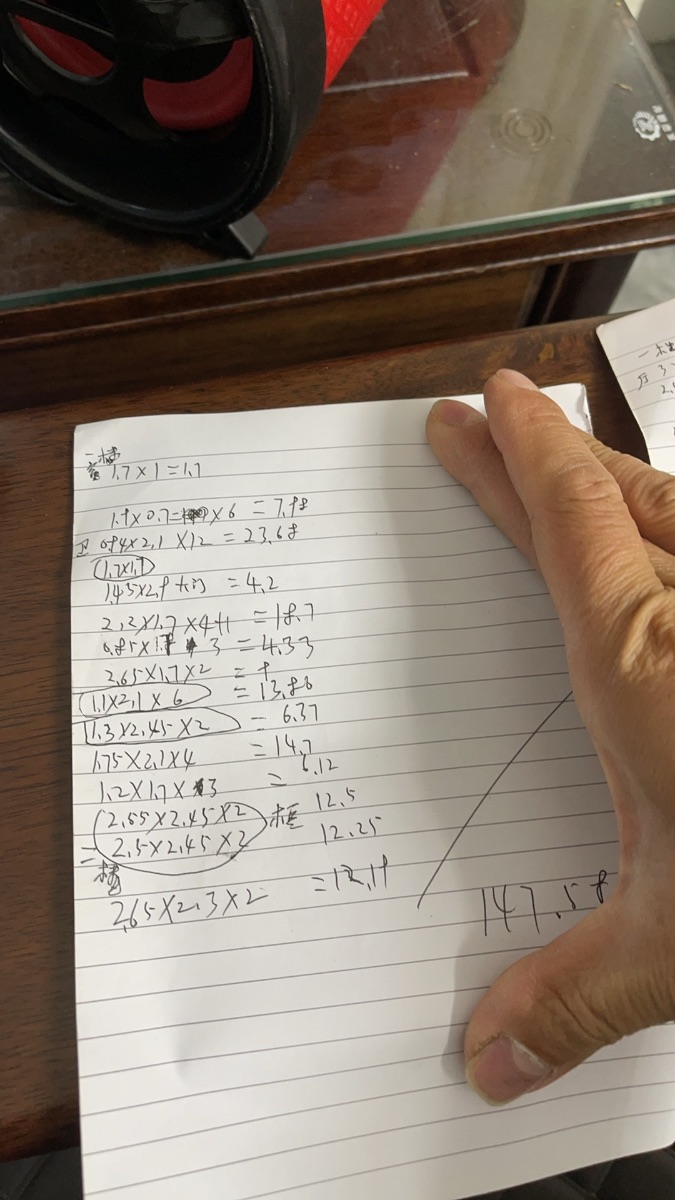 二楼
窗 1.7×1=1.7
1.9×0.7= ×6 =7.98
卫 0.94×2.1 ×12 =23.68
1.7×1.9
1.45×2.9 大门 =4.2
2.2×1.7×4+1 =18.7
0.85×1.7 3 =4.33
2.65×1.7×2 =9
1.1×2.1×6 =13.86
1.3×2.45×2 =6.37
1.75×2.1×4 =14.7
1.2×1.7×3 =6.12
2.55×2.45×2 框 12.5
2.5×2.45×2 12.25
二楼
2.65×2.3×2 =12.19
147.58
一楼
厅 3
2.